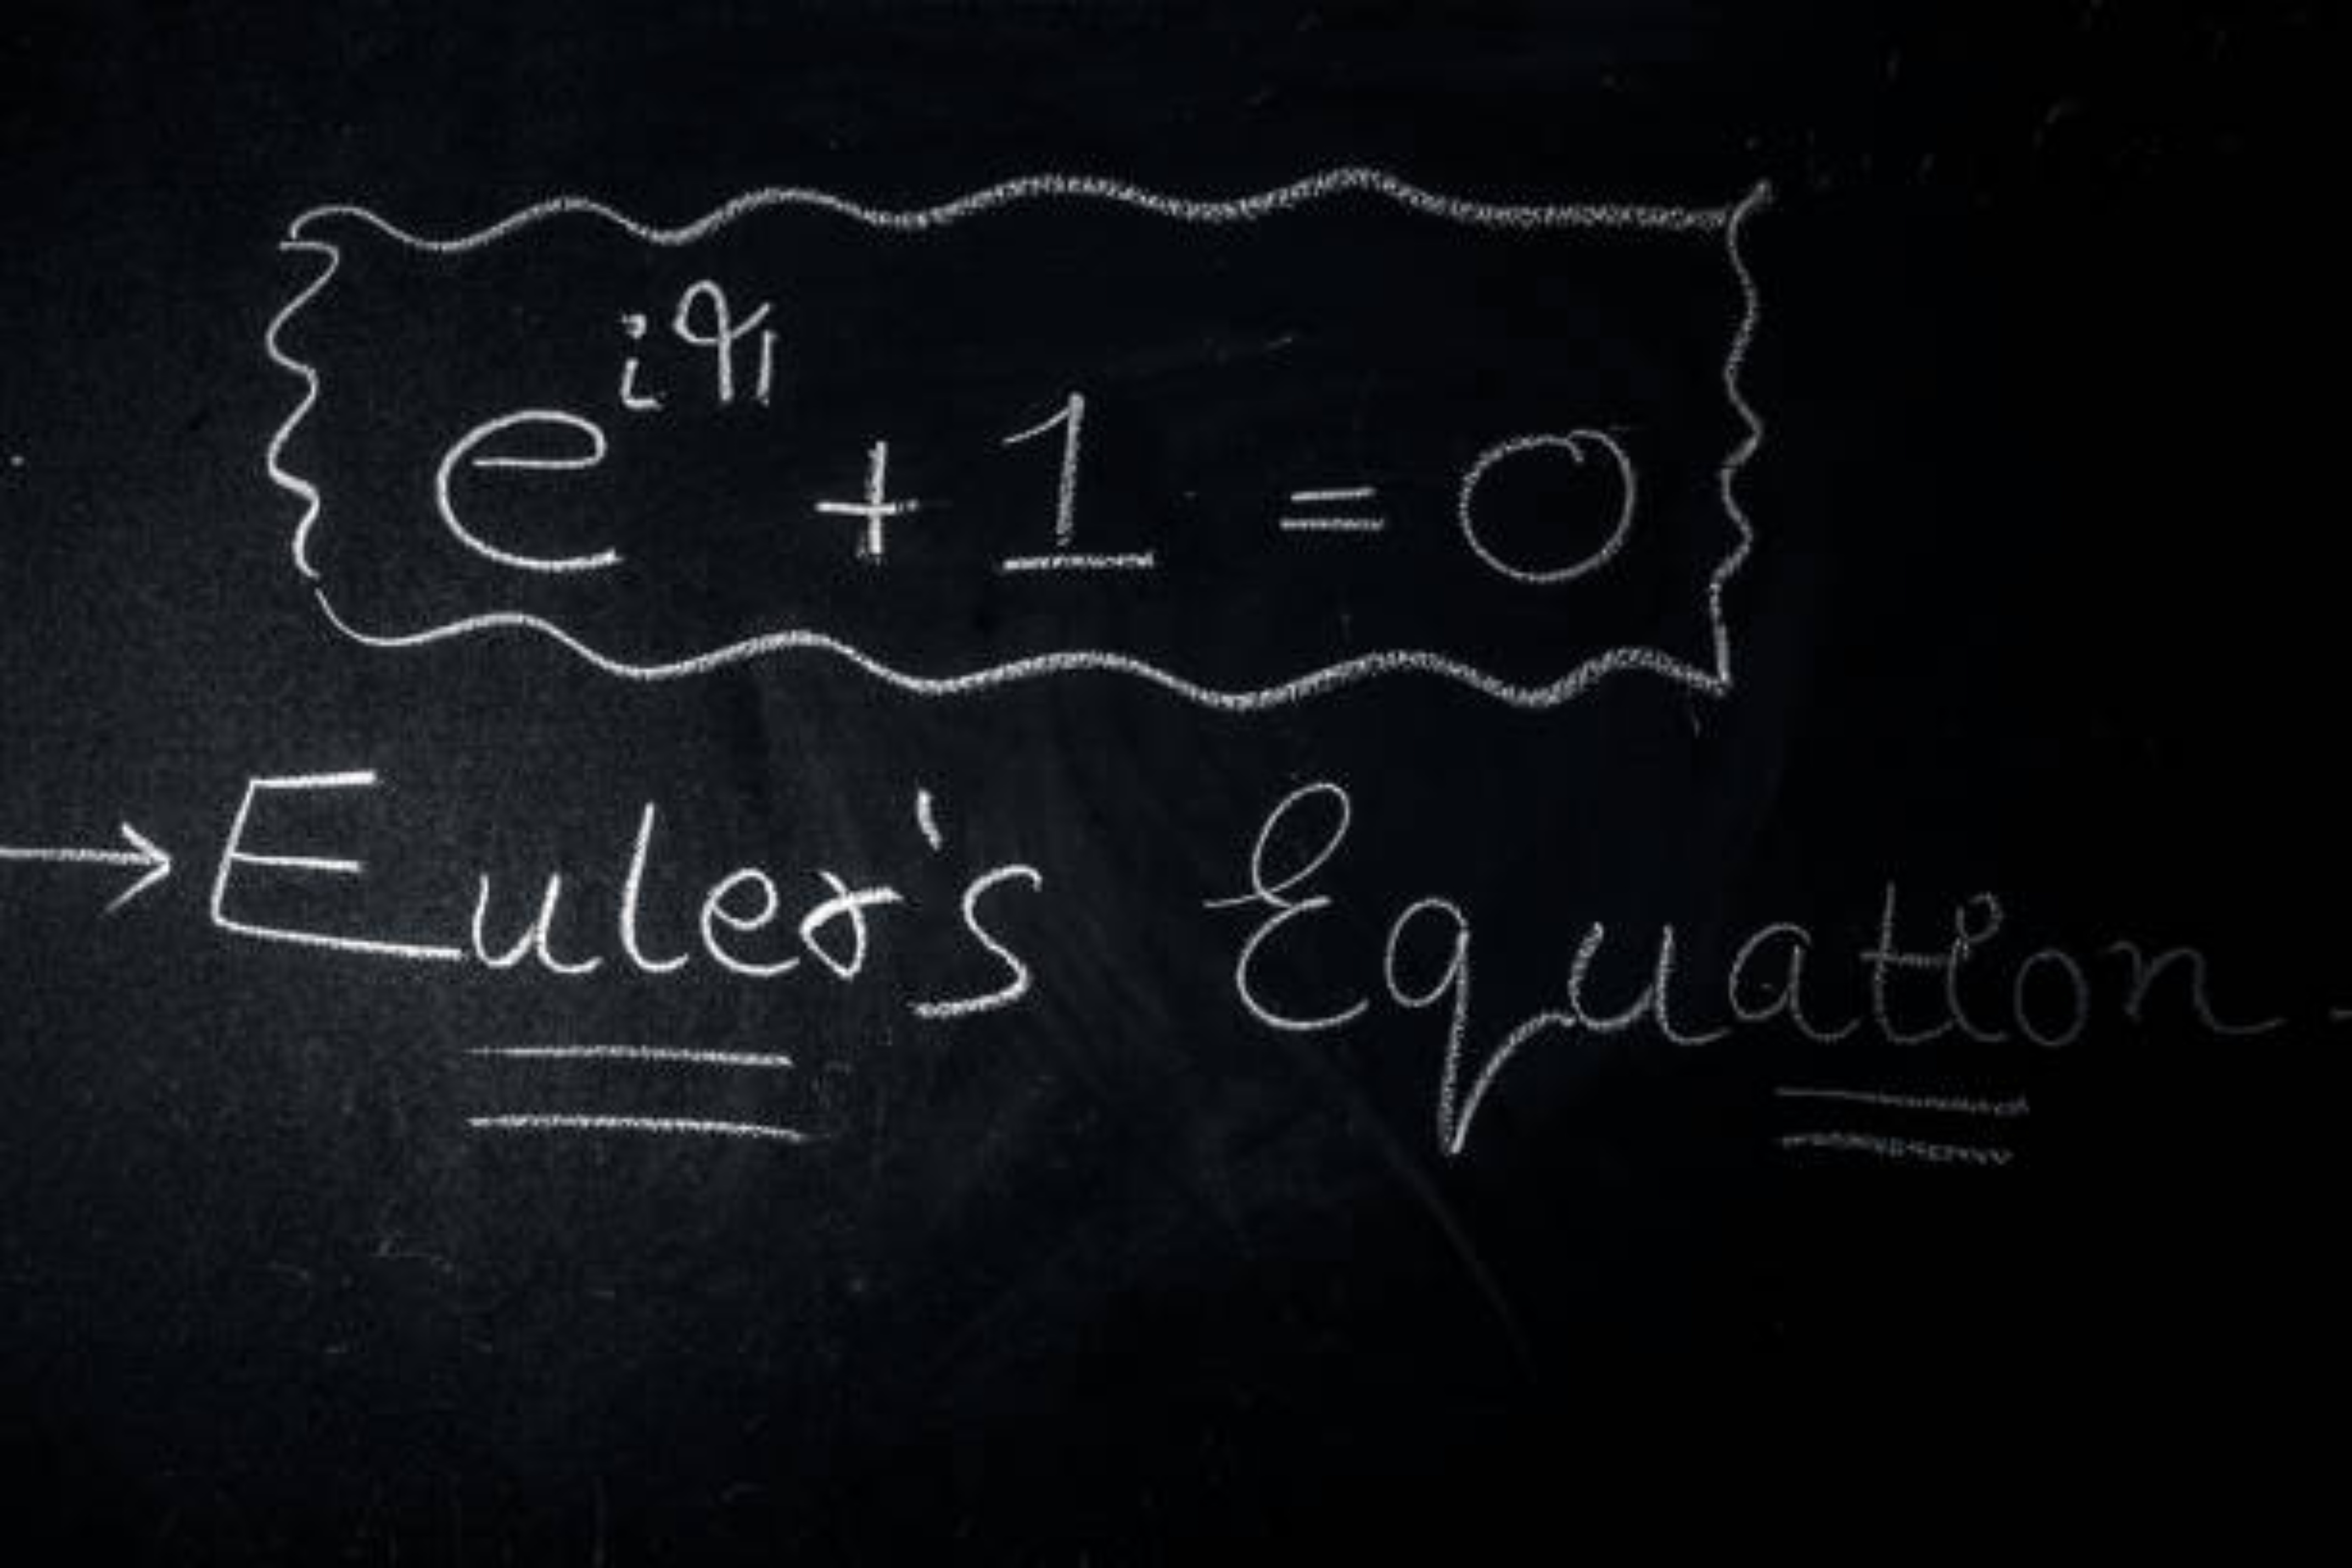 e^{iπ} + 1 = 0
→ Euler's Equation -